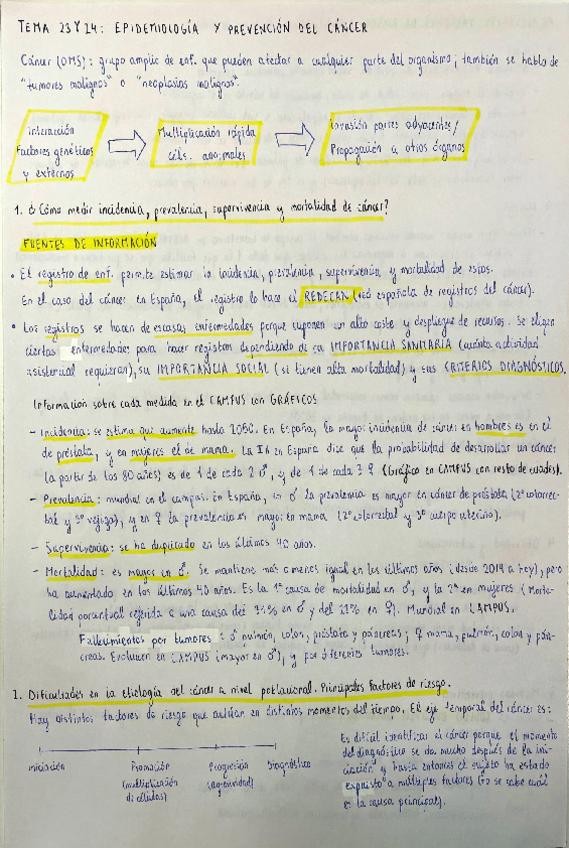 TEMA 23 Y 24: EPIDEMIOLOGÍA Y PREVENCIÓN DEL CÁNCER
Cáncer (OMS): grupo amplio de enf. que pueden afectar a cualquier parte del organismo; también se habla de
"tumores malignos" o "neoplasias malignas".
Interacción
Factores genéticos
y externos
Multiplicación rápida
céls. anormales
Invasión partes adyacentes/
Propagación a otros órganos
1. ¿Cómo medir incidencia, prevalencia, supervivencia y mortalidad de cáncer?
FUENTES DE INFORMACIÓN
• El registro de enf. permite estimar la incidencia, prevalencia, supervivencia y mortalidad de estas.
En el caso del cáncer en España, el registro lo hace el REDECAN (red española de registros del cáncer).
• Los registros se hacen de escasas enfermedades porque suponen un alto coste y despliegue de recursos. Se eligen
ciertas enfermedades para hacer registros dependiendo de su IMPORTANCIA SANITARIA (cuánta actividad
asistencial requieran), su IMPORTANCIA SOCIAL (si tienen alta mortalidad) y sus CRITERIOS DIAGNÓSTICOS.
Información sobre cada medida en el CAMPUS con GRÁFICOS
- Incidencia: se estima que aumente hasta 2050. En España, la mayor incidencia de cáncer en hombres es en el
de próstata, y en mujeres el de mama. La IA en España dice que la probabilidad de desarrollar un cáncer
(a partir de los 80 años) es de 1 de cada 2 ♂, y de 1 de cada 3 ♀ (Gráfico en CAMPUS con resto de edades).
- Prevalencia: mundial en el campus. En España, en ♂ la prevalencia es mayor en cáncer de próstata (2º colorrec-
tal y 3º vejiga), y en ♀ la prevalencia es mayor en mama (2º colorrectal y 3º cuerpo uterino).
- Supervivencia: se ha duplicado en los últimos 40 años.
- Mortalidad: es mayor en ♂. Se mantiene más o menos igual en los últimos años (desde 2014 a hoy), pero
ha aumentado en los últimos 40 años. Es la 1ª causa de mortalidad en ♂, y la 2ª en mujeres (Morta-
lidad porcentual referida a una causa del en ♂ y del en ♀). Mundial en CAMPUS.
Fallecimientos por tumores: ♂ pulmón, colon, próstata y páncreas; ♀ mama, pulmón, colon y pán-
creas. Evolución en CAMPUS (mayor en ♂), y por diferentes tumores.
2. Dificultades en la etiología del cáncer a nivel poblacional. Principales factores de riesgo.
Hay distintos factores de riesgo que actúan en distintos momentos del tiempo. El eje temporal del cáncer es:
Iniciación
Promoción
(multiplicación
de células)
Progresión
(agresividad)
Diagnóstico
Es difícil identificar el cáncer porque el momento
del diagnóstico se da mucho después de la ini-
ciación y hasta entonces el sujeto ha estado
expuesto a múltiples factores (no se sabe cuál
es la causa principal).